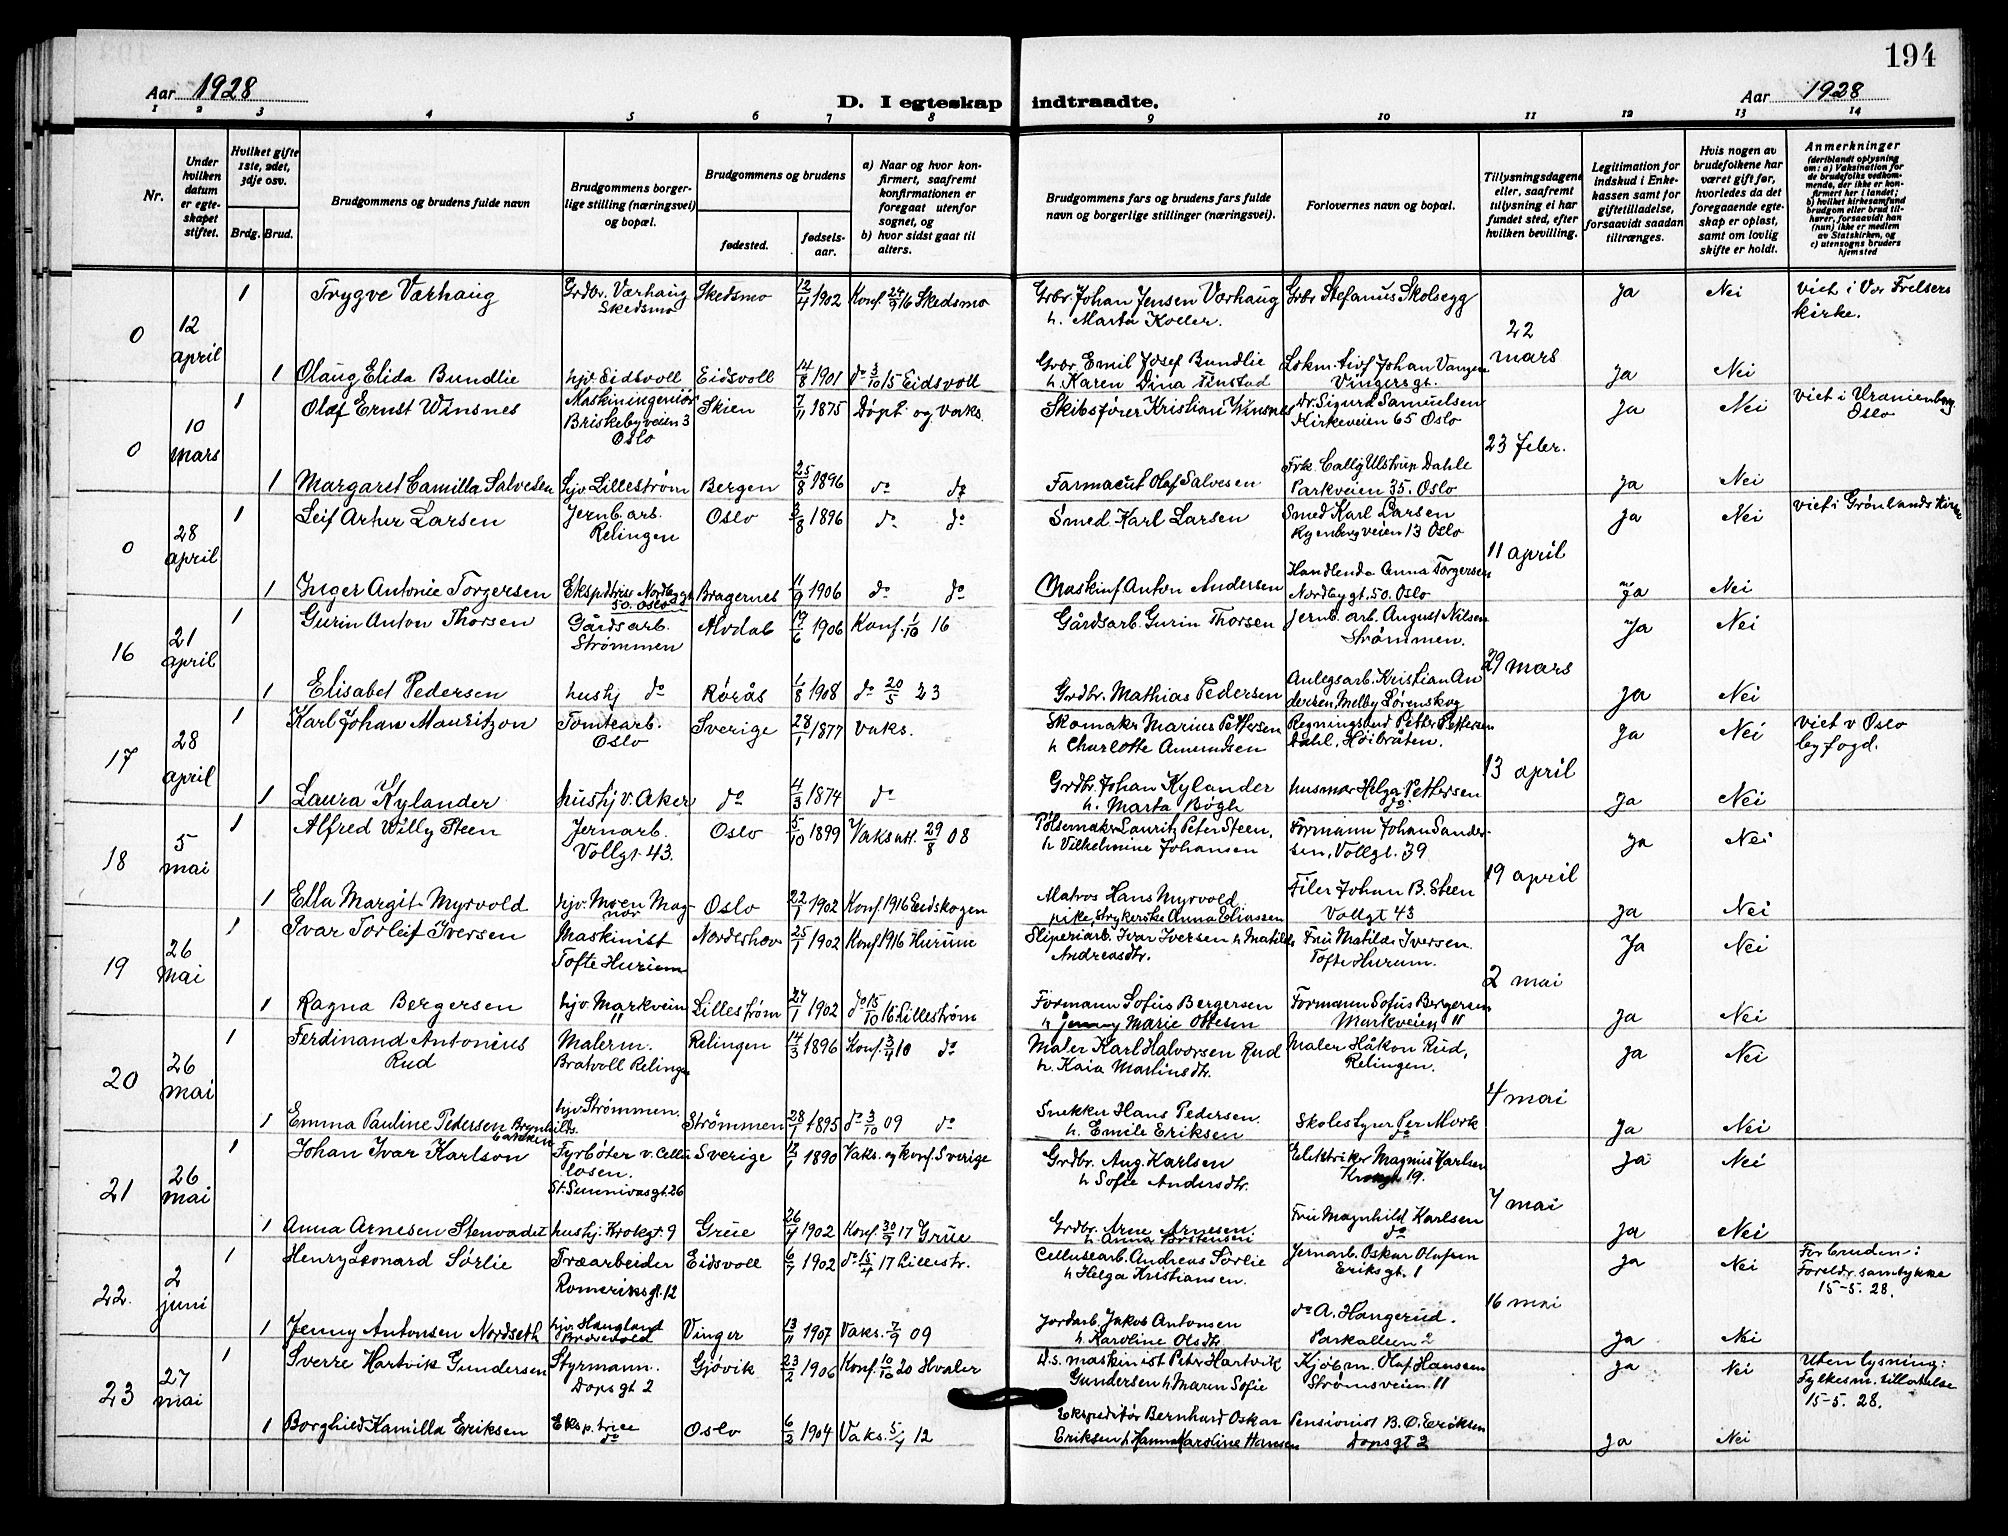 194
Aar 1928
D. I egteskap indtraadte.
Aar 1928
1 2 3 4 5 6 7 8 9 10 11 12 13 14
Nr.
Under hvilken datum er egteskapet stiftet.
Hvilket gifte 1ste, 2det, 3dje osv.
Brdg. Brud.
Brudgommens og brudens fulde navn
Brudgommens borgerlige stilling (næringsvei) og bopæl.
Brudgommens og brudens
fødested.
fødselsaar.
a) Naar og hvor konfirmert, saafremt konfirmationen er foregaat utenfor sognet, og
b) hvor sidst gaat til alters.
Brudgommens fars og brudens fars fulde navn og borgerlige stillinger (næringsvei).
Forlovernes navn og bopæl.
Tillysningsdagene eller, saafremt tillysning ei har fundet sted, efter hvilken bevilling.
Legitimation for indskud i Enkekassen samt for giftetilladelse, forsaavidt saadan tiltrænges.
Hvis nogen av brudefolkene har været gift før, hvorledes da det foregaaende egteskap er opløst, samt om lovlig skifte er holdt.
Anmerkninger
(deriblandt oplysning om: a) Vaksination for de brudefolks vedkommende, der ikke er konfirmert her i landet; b) hvilket kirkesamfund brudgom eller brud tilhører, forsaavidt han (hun) ikke er medlem av Statskirken, og c) utensogns bruders hjemsted
0 12 april 22 mars
1 Trygve Værhaug Grdbr. Værhaug Skedsmo Skedsmo 12/4 1902 Konf. 24/9 16 Skedsmo Grbr. Johan Jensen Værhaug h. Marta Koller. Grbr Stefanus Skolsegg Ja Nei viet i Vor Frelsers kirke.
1 Olaug Elida Bundlie hjv. Eidsvoll Eidsvoll 14/8 1901 do 3/10 15 Eidsvoll Grbr. Emil Josef Bundlie h. Karen Dina Tinstad Johan Vangen Vingersgt. Ja Nei
0 10 mars 23 febr.
1 Olaf Ernst Winsnes Maskiningeniør Briskebyveien 3 Oslo Skien 7/11 1875 Døpt. og vaks. Skibsfører Kristian Winsnes Dr. Sigurd Samuelsen Kirkeveien 65 Oslo Ja Nei viet i Uranienborg Oslo
1 Margaret Camilla Salvesen hjv. Lillestrøm Bergen 25/8 1896 do do Farmaceut Olaf Salvesen Frk. Ulstrup Dahle Parkveien 35. Oslo Ja Nei
0 28 april 11 april
1 Leif Artur Larsen Jernb. arb. Relingen Oslo 3/8 1896 do do Smed Karl Larsen Smed Karl Larsen Ryenbergveien 13 Oslo Ja Nei viet i Grønlands Kirke
1 Inger Antonie Torgersen Ekspeditrise Nordbygt 50. Oslo Bragernes 11/9 1906 do do Maskinf Anton Andersen Handlende Anna Torgersen Nordbygt. 50. Oslo Ja Nei
16 21 april 29 mars
1 Gurin Anton Thorsen Gårdsarb. Strømmen Alvdal 17/6 1906 Konf. 1/10 16 Gårdsarb. Gurin Thorsen Jernb. arb. August Nilsen Strømmen. Ja Nei
1 Elisabet Pedersen hushj do Rørås 1/8 1908 do 20/5 23 Grdbr. Mathias Pedersen Anlegsarb. Kristian Andersen, Melby Lørenskog Ja Nei
17 28 april 13 april
1 Karl Johan Mauritzon Tomtearb. Oslo Sverige 28/1 1877 vaks. Skomakr Marius Pettersen h Charlotte Amundsen Peter Pettersen Dahl, Høibråten. Ja Nei viet v Oslo byfogd.
1 Laura Kylander hushj v. Aker do 4/3 1874 do Grdbr. Johan Kylander h. Marta Bøgh husmor Helga Pettersen do Ja Nei
18 5 mai 19 april
1 Alfred Willy Steen Jernarb. Vollgt. 43. Oslo 5/10 1899 Vaks att. 29/8 08 Pølsemakr Lauritz Peter Steen, h Vilhelmine Johansen Formann Johan Sandersen, Vollgt. 39 Ja Nei
1 Ella Margit Myrvold hjv. Moen Magnor Oslo 22/1 1902 Konf. 1916 Eidskogen Matros Hans Myrvold pike, Strykerske Anna Eliassen Filer Johan B. Steen Vollgt 43 Ja Nei
19 26 Mai 2 mai
1 Ivar Torleif Iversen Maskinist Tofte Hurum Norderhov 25/1 1902 Konf 1916 Hurum Sliperiarb. Ivar Iversen h Matilde Andreasdtr. Fru Matilde Iversen. Tofte Hurum. Ja Nei
1 Ragna Bergersen hjv. Markveien 11 Lillestrøm 27/1 1902 do 15/10 16 Lillestrøm Formann Sofus Bergersen h Jenny Marie Ottesen Formann Sofus Bergersen Markveien 11 Ja Nei
20 26 mai 4 mai
1 Ferdinand Antonius Rud Malerm. Bratvoll Relingen Relingen 14/3 1896 Konf. 3/4 10 do Maler Karl Halvorsen Rud h. Kaia Martinsdtr. Maler Håkon Rud, Relingen. Ja Nei
1 Emma Pauline Pedersen hjv Strømmen. Strømmen 28/1 1895 do 3/10 09 do Snekker Hans Pedersen. h. Emile Eriksen Skolestyrer Per Mork do Ja Nei
21 26 mai 7 mai
1 Johan Ivar Karlson Fyrbøter v. Cellulosen. St. Sunnivasgt 26 Sverige 12/1 1890 Vaks. og konf. Sverige Grdbr. Aug. Karlsen h Sofie Andersdtr. Elektriker Magnus Karlsen Krokgt 19. Ja Nei
1 Anna Arnesen Stenvadet hushj. Krokgt. 9 Grue 26/4 1902 Konf. 30/9 17 Grue Grdbr. Arne Arnesen. h Anna Torstensen Fru Magnhild Karlsen do Ja Nei
22. 2 juni 16 mai
1 Henry Leonard Sørlie Træarbeider Romeriksgt. 12 Eidsvoll 6/7 1902 do 15/4 17 Lillestr. Cellulsearb. Andreas Sørlie h Helga Kristiansen. Jernarb. Oskar Olafsen Eriksgt. 1 Ja Nei For bruden: Foreldr. samtykke 15-5. 28.
1 Jenny Antonsen Nordseth hjv. Haugland Brårevold Vinger 13/11 1907 Vaks. 7/9 09 Jordarb. Jakob Antonsen h. Karoline Olsdtr. do A. Haugerud. Parkalleen 2 Ja Nei
23 27 mai
1 Sverre Hartvik Gundersen Styrmann. Dopsgt 2 Gjøvik 23/2 1906 Konf. 10/10 20 Hvaler D.s. maskinist Peter Hartvik Gundersen h Maren Sofie Kjøbm. Olaf Hanssen Strømsveien 11 Ja Nei Uten lysning: Fylkesm. tillatelse 15-5. 28.
1 Borghild Kamilla Eriksen Eksp.trice do Oslo 6/2 1904 Vaks. 5/7 12 Ekspeditør Bernhard Oskar Eriksen h Hanna Karoline Hansen Pensionist B. O. Eriksen Dopsgt 2 Ja Nei